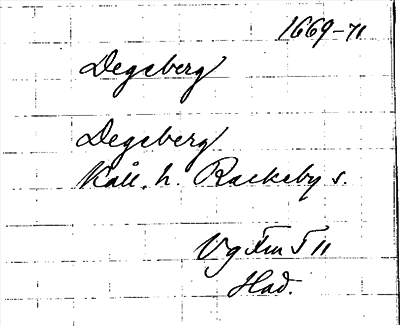 1669-71
Degeberg
Degeberg
Kåll. h. Rackeby s.
Vg Fm T 11
Had.